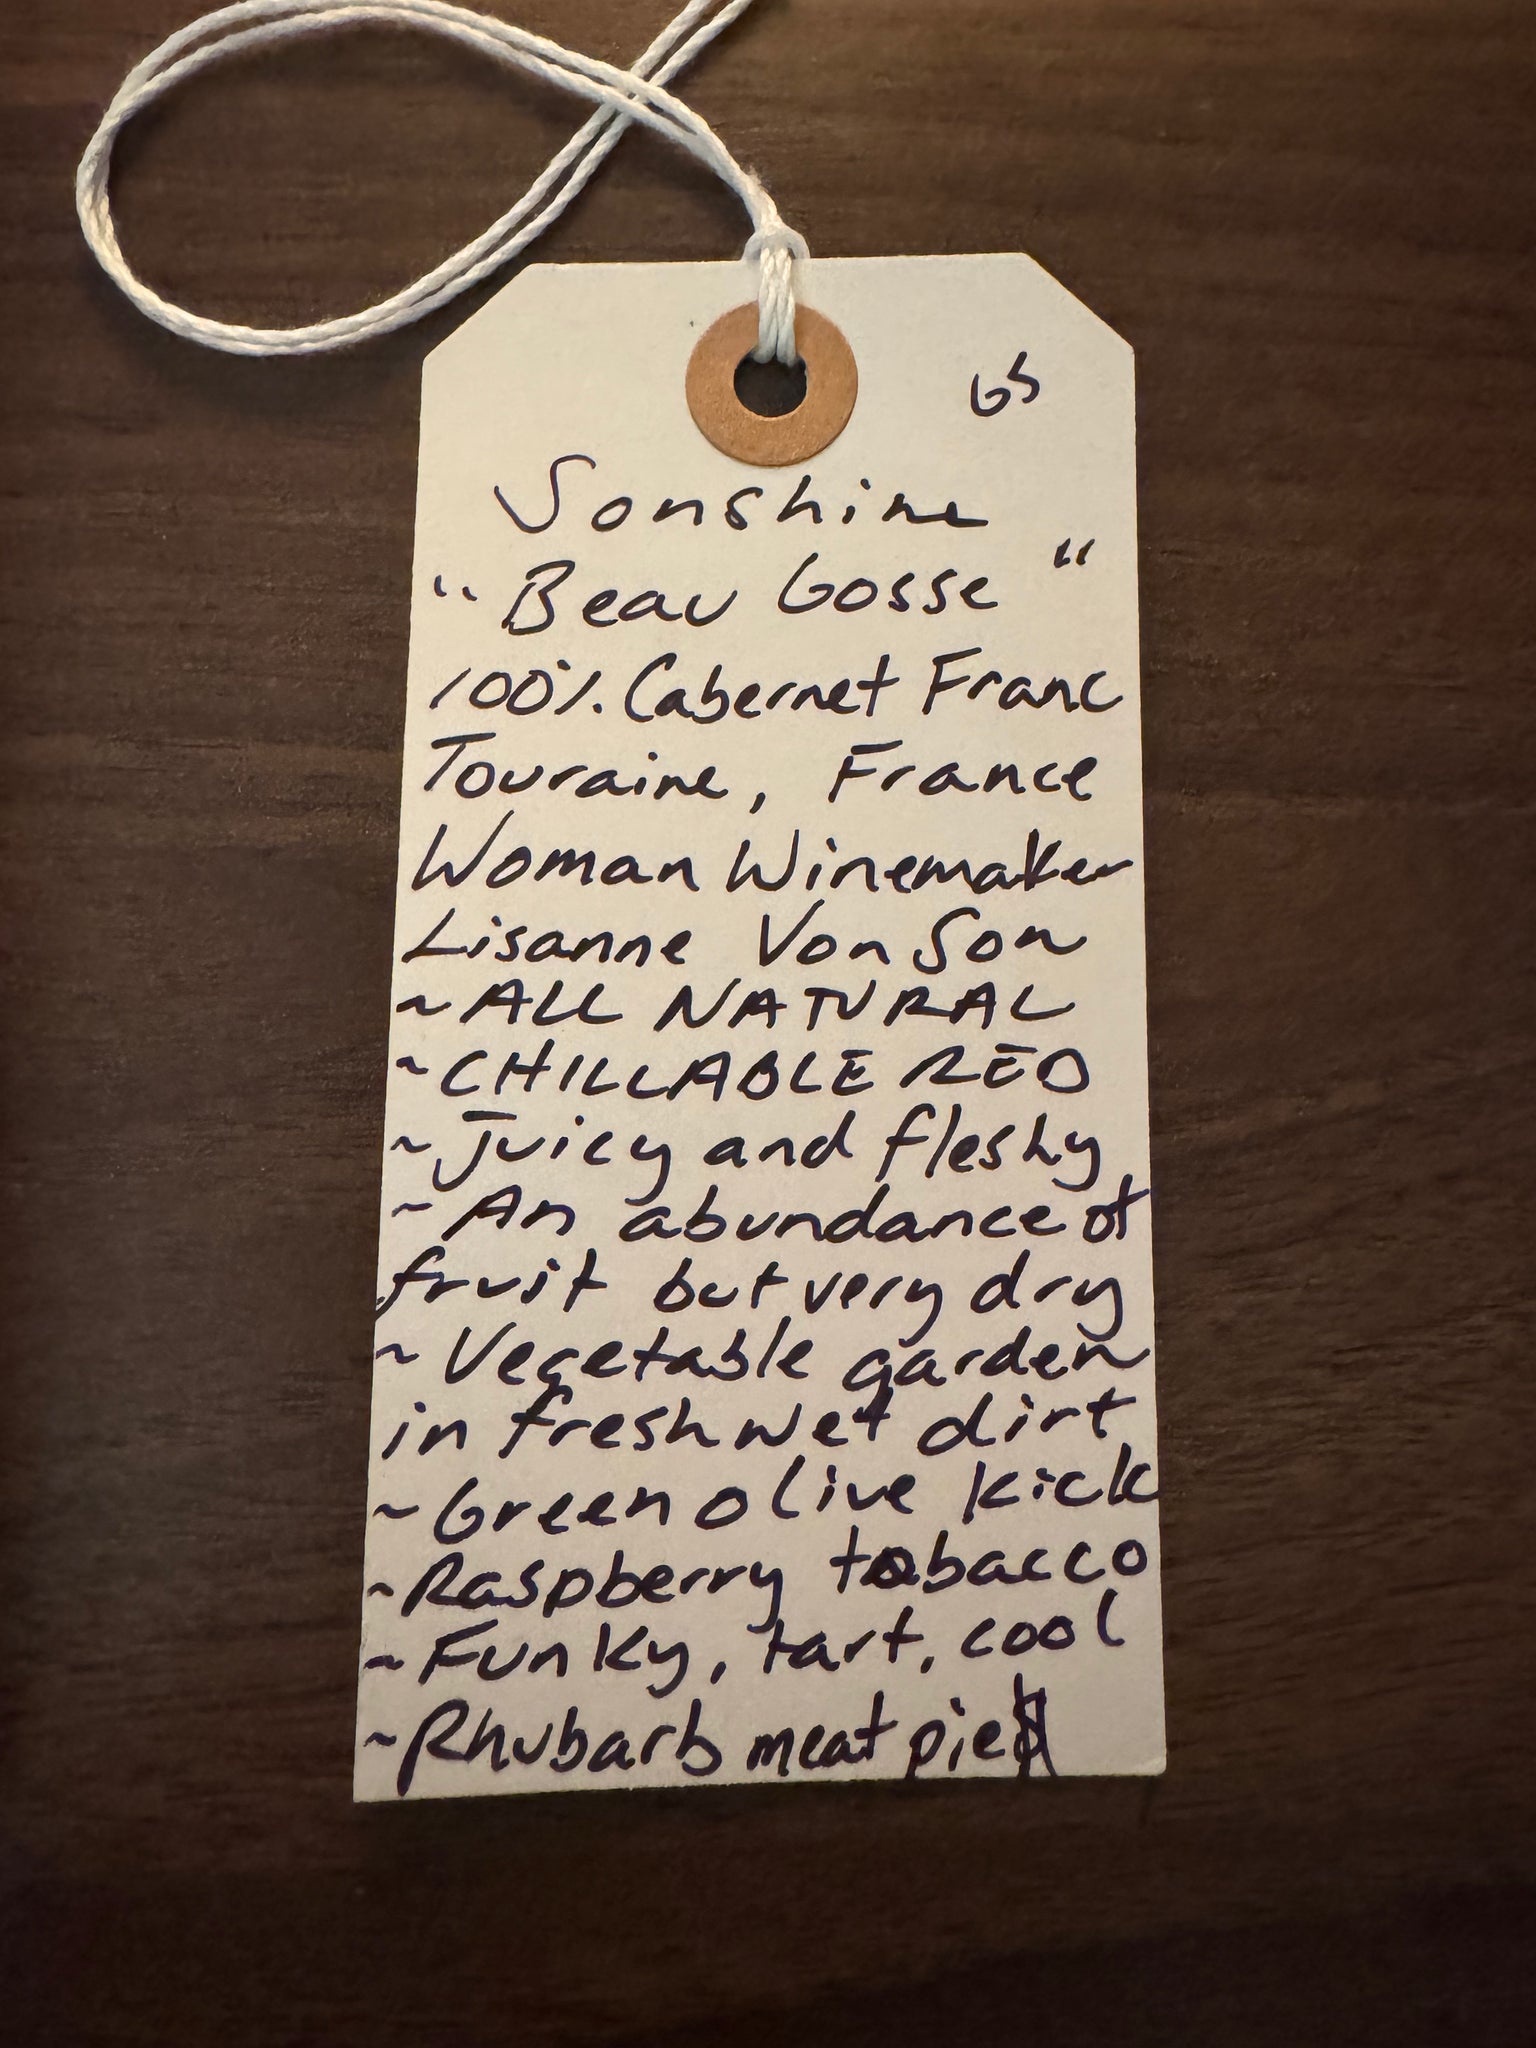 GS
Sonshine
"Beau Gosse"
100%. Cabernet Franc
Touraine, France
Woman Winemaker
Lisanne Von Son
~ ALL NATURAL
~ CHILLABLE RED
~ Juicy and fleshy
~ An abundance of
fruit but very dry
~ Vegetable garden
in fresh wet dirt
~ Green olive kick
~ Raspberry tobacco
~ Funky, tart, cool
~ Rhubarb meat pie